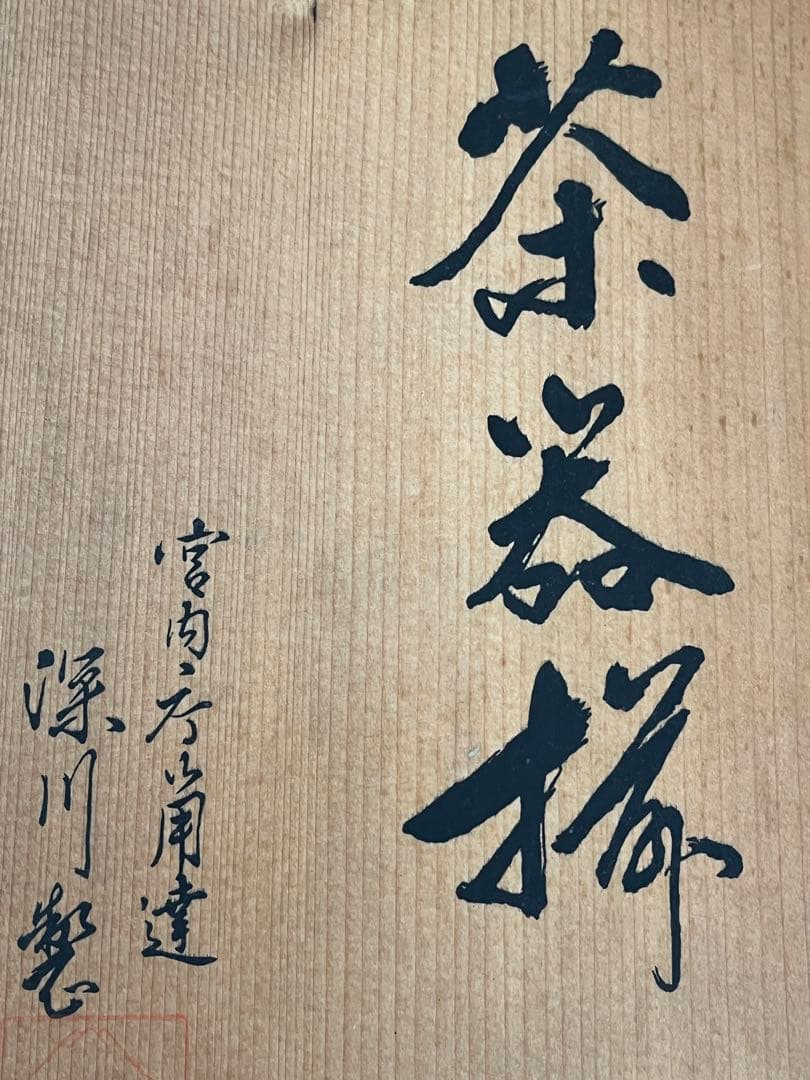 茶器揃
宮内庁御用達
深川製